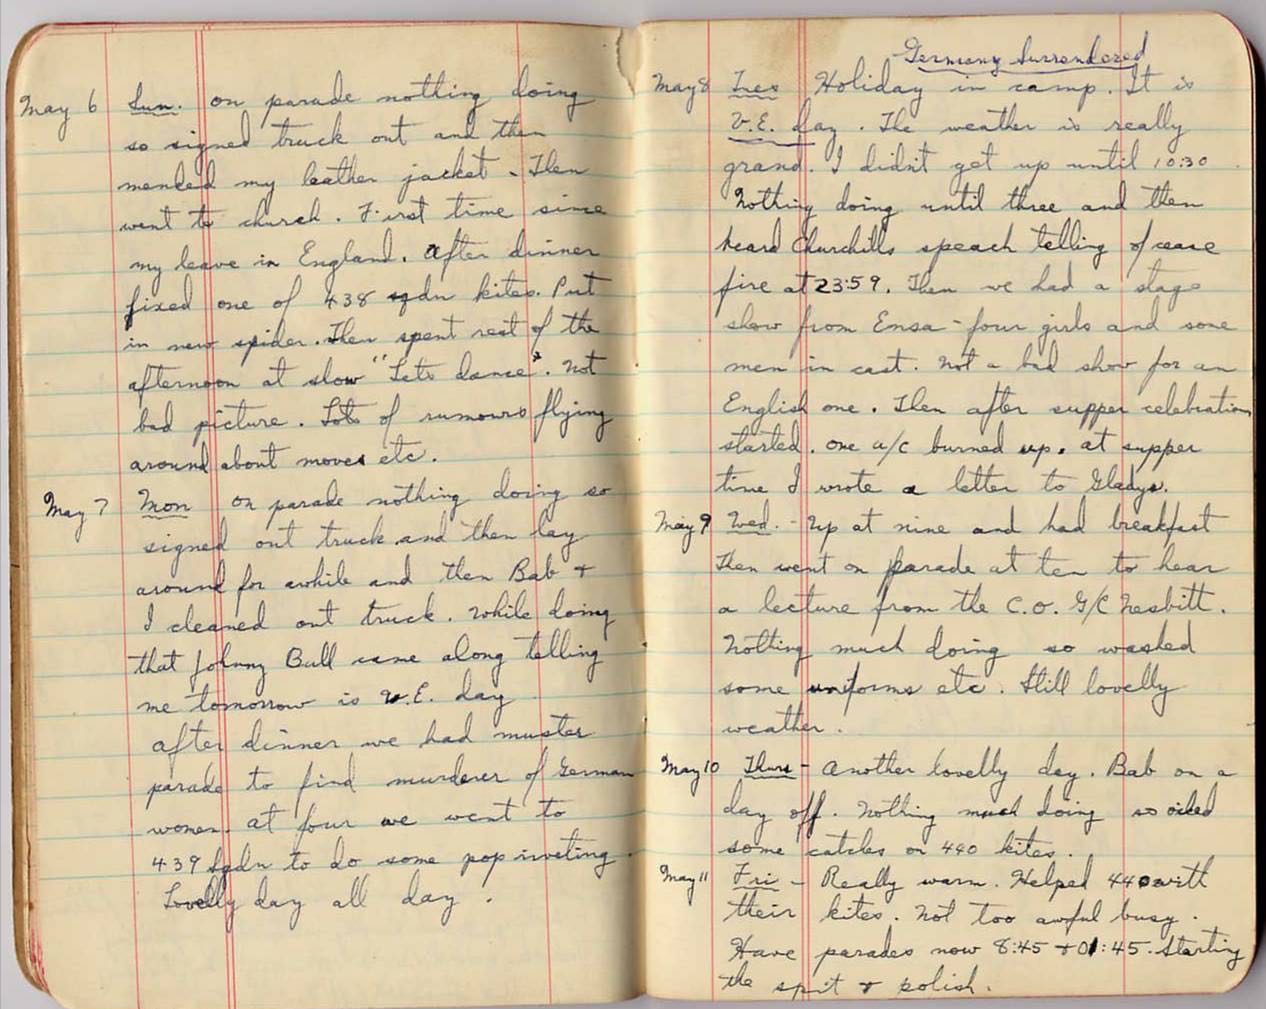 May 6 Sun. on parade nothing doing
so signed truck out and then
mended my leather jacket - Then
went to church. First time since
my leave in England. After dinner
fixed one of 438 sqdn kites. Put
in new spider. Then spent rest of the
afternoon at show "Lets dance". Not
bad picture. Lots of rumours flying
around about moves etc.
May 7 Mon on parade nothing doing so
signed out truck and then lay
around for awhile and then Bab +
I cleaned out truck. While doing
that Johnny Bull came along telling
me tomorrow is V.E. day
After dinner we had muster
parade to find murderer of German
women. at four we went to
439 Sqdn to do some pop riveting.
Lovelly day all day.
Germany Surrendered
May 8 Tues Holiday in camp. It is
V.E. day. The weather is really
grand. I didn't get up until 10:30.
Nothing doing until three and then
heard Churchills speach telling of cease
fire at 23:59. Then we had a stage
show from Ensa - four girls and some
men in cast. Not a bad show for an
English one. Then after supper celebration
started. one a/c burned up. at supper
time I wrote a letter to Gladys.
May 9 Wed. - Up at nine and had breakfast
Then went on parade at ten to hear
a lecture from the C.O. G/C Nesbitt.
Nothing much doing so washed
some uniforms etc. Still lovelly
weather.
May 10 Thurs - Another lovelly day. Bab on a
day off. Nothing much doing so oiled
some catches on 440 kites.
May 11 Fri - Really warm. Helped 440 with
their kites. Not too awful busy.
Have parades now 8:45 + 01:45. Starting
the spit & polish.